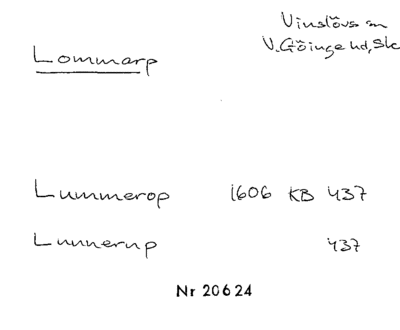 Vinslövs sn
Lommarp V. Göinge hd, Sk
Lummerop 1606 KB 437
Lunnerup 437
Nr 20624